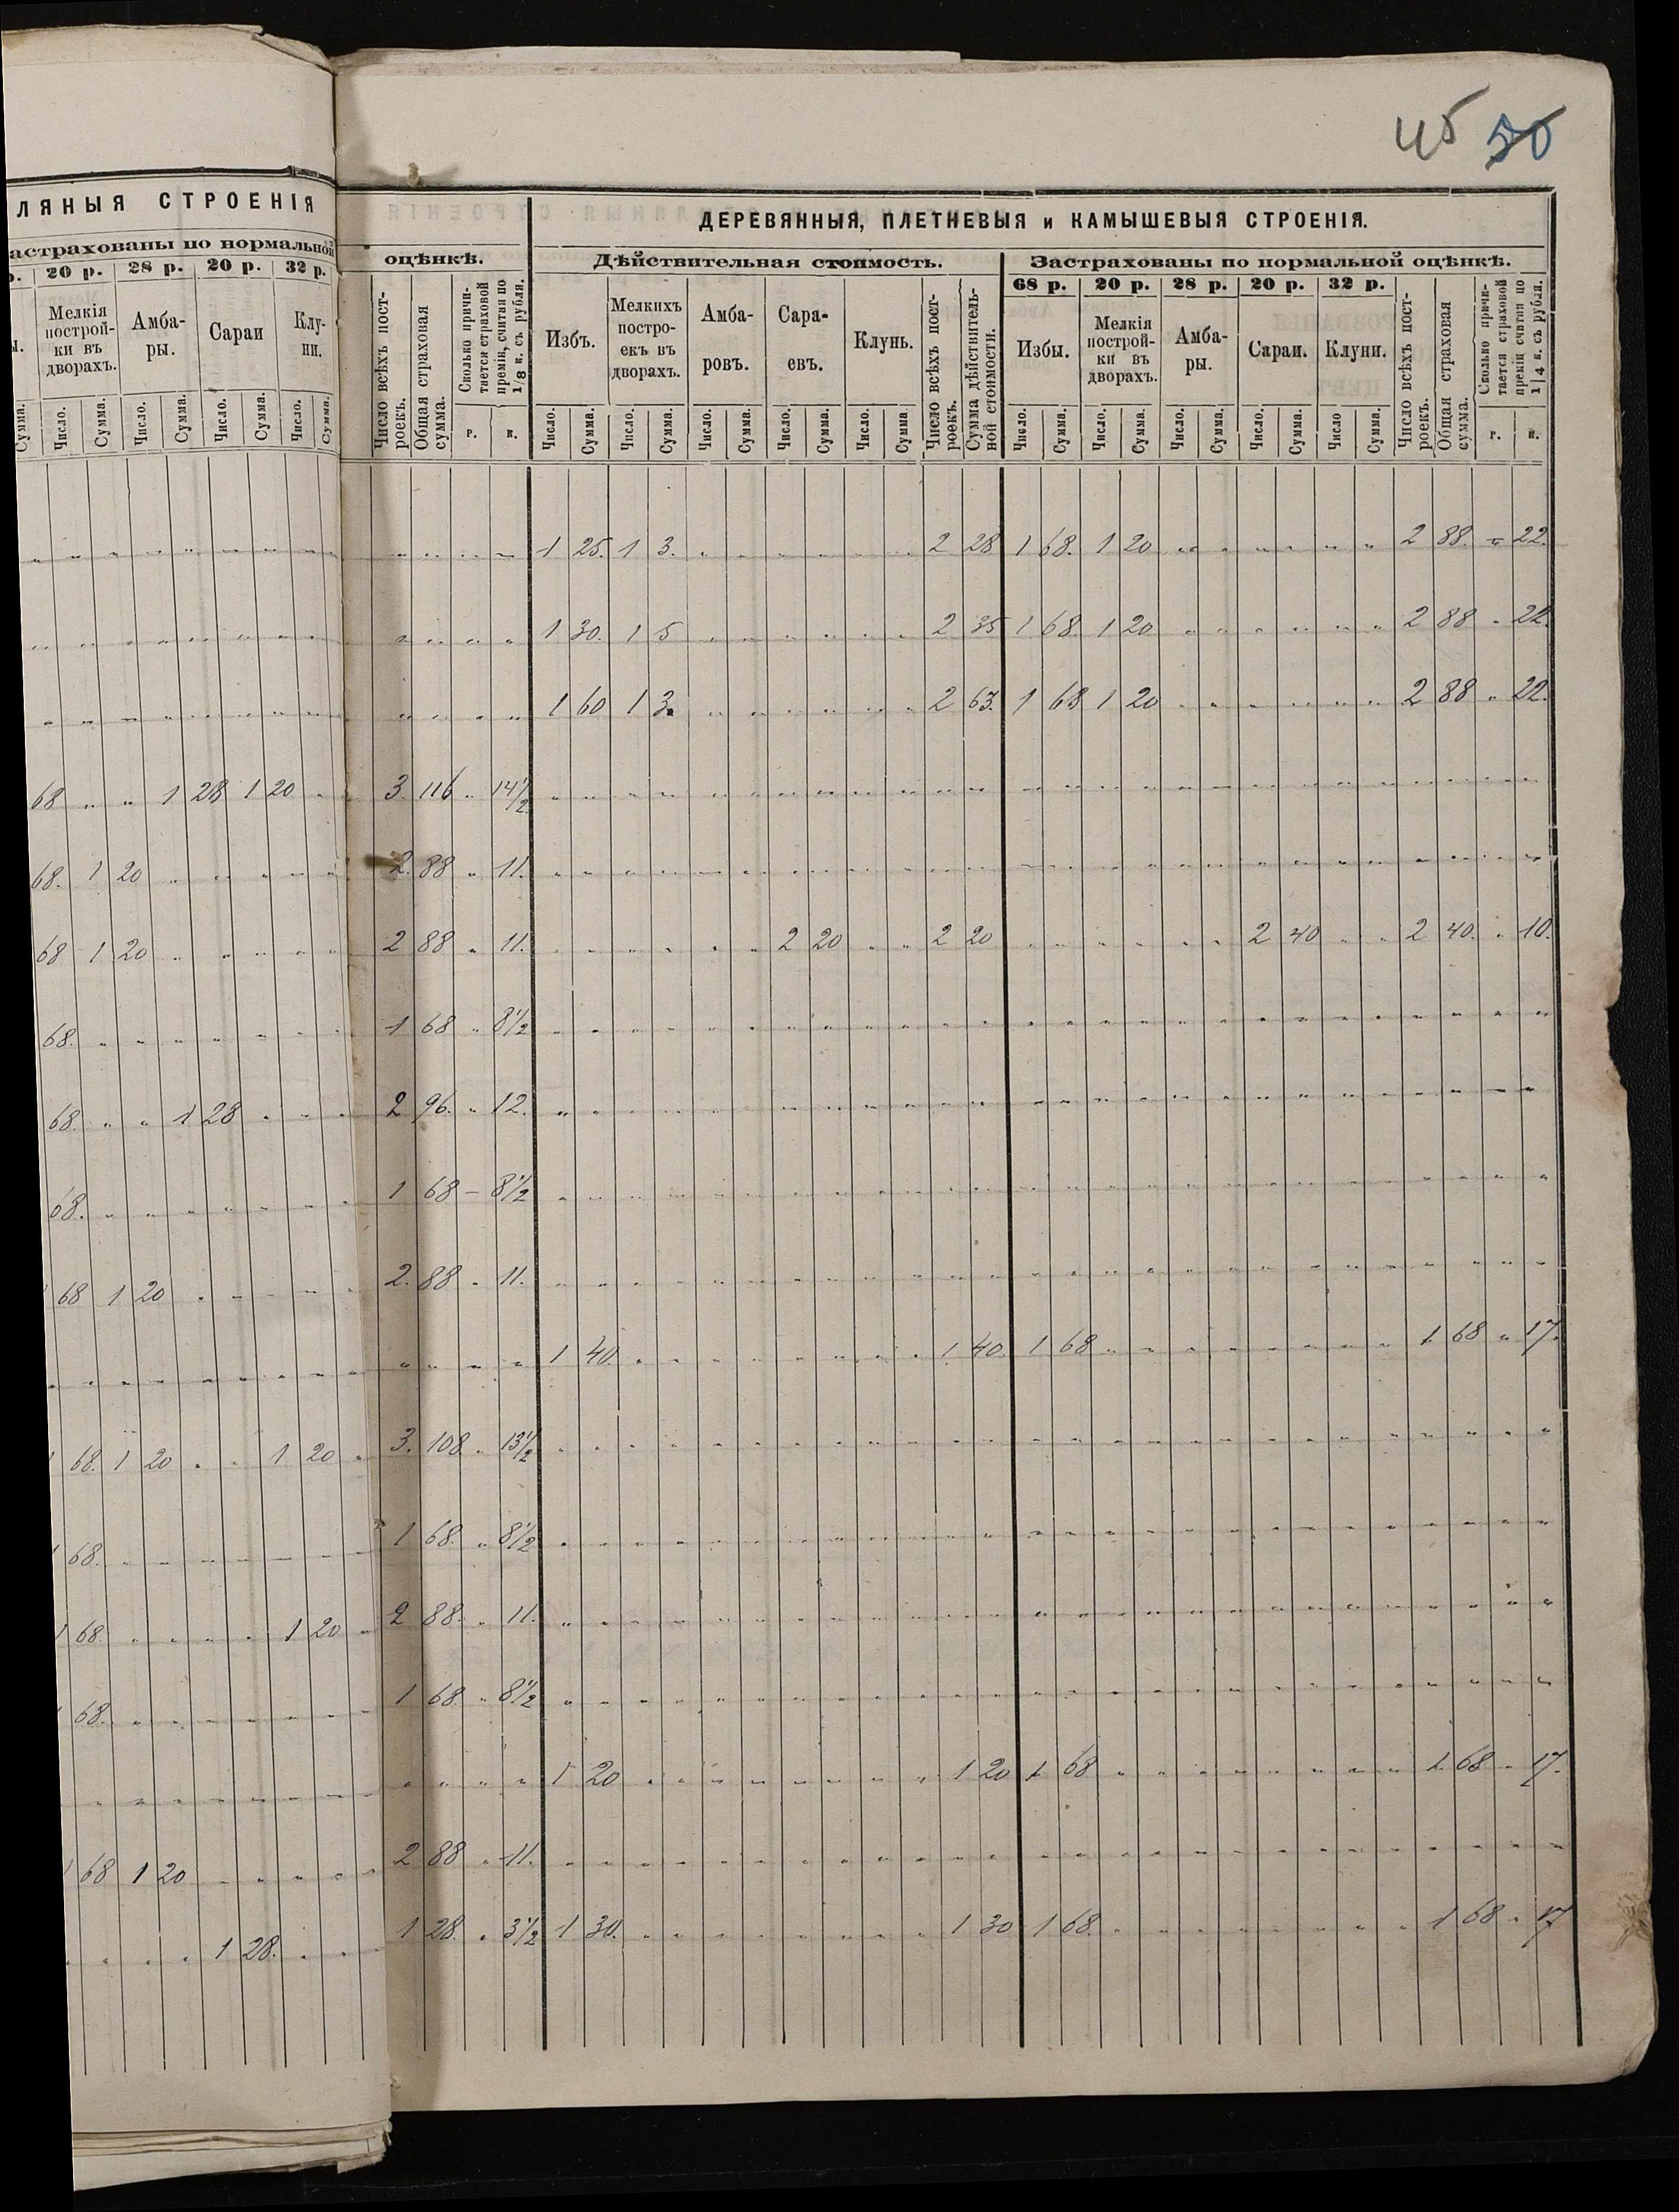 45 50
ЛЯНЫЯ СТРОЕНІЯ
ДЕРЕВЯННЫЯ, ПЛЕТНЕВЫЯ и КАМЫШЕВЫЯ СТРОЕНІЯ.
астрахованы по нормальной оцѣнкѣ. Дѣйствительная стоимость. Застрахованы по нормальной оцѣнкѣ.
р. 20 р. 28 р. 20 р. 32 р. 68 р. 20 р. 28 р. 20 р. 32 р.
Мелкія построй-ки въ дворахъ. Амба-ры. Сараи Клу-ни. Число всѣхъ пост-роекъ. Общая страховая сумма. Сколько причи-тается страховой преміи, считая по 1/8 к. съ рубля. Избъ. Мелкихъ постро-екъ въ дворахъ. Амба-ровъ. Сара-евъ. Клунь. Число всѣхъ пост-роекъ. Сумма дѣйствитель-ной стоимости. Избы. Мелкія построй-ки въ дворахъ. Амба-ры. Сараи. Клуни. Число всѣхъ пост-роекъ. Общая страховая сумма. Сколько причи-тается страховой преміи считая по 1/4 к. съ рубля.
Сумма. Число. Сумма. Число. Сумма. Число. Сумма. Число. Сумма. р. к. Число. Сумма. Число. Сумма. Число. Сумма. Число. Сумма. Число. Сумма Число. Сумма. Число. Сумма. Число. Сумма. Число. Сумма. Число. Сумма. г. к.
1 25. 1 3. 2 28 1 68. 1 20 2 88. 22.
1 30. 1 5 2 35 1 68. 1 20 2 88 22.
1 60 1 3. 2 63. 1 68 1 20 2 88 22.
68 1 28 1 20 3. 116 14 1/2
68. 1 20 2. 88 11.
68 1 20 2 88 11. 2 20 2 20 2 40 2 40. 10.
68. 1 68 8 1/2
68. 1 28 2 96. 12.
68. 1 68 – 8 1/2
68 1 20 2. 88 11.
1 40. 1 40. 1 68 1 68 17.
68. 1 20 1 20 3. 108 13 1/2
68. 1 68. 8 1/2
1 68. 1 20 2 88. 11.
68. 1 68. 8 1/2
1 20 1 20 1 68 1 68 17.
68 1 20 2 88 11.
1 28. 1 28. 3 1/2 1 30. 1 30 1 68. 1 68 17